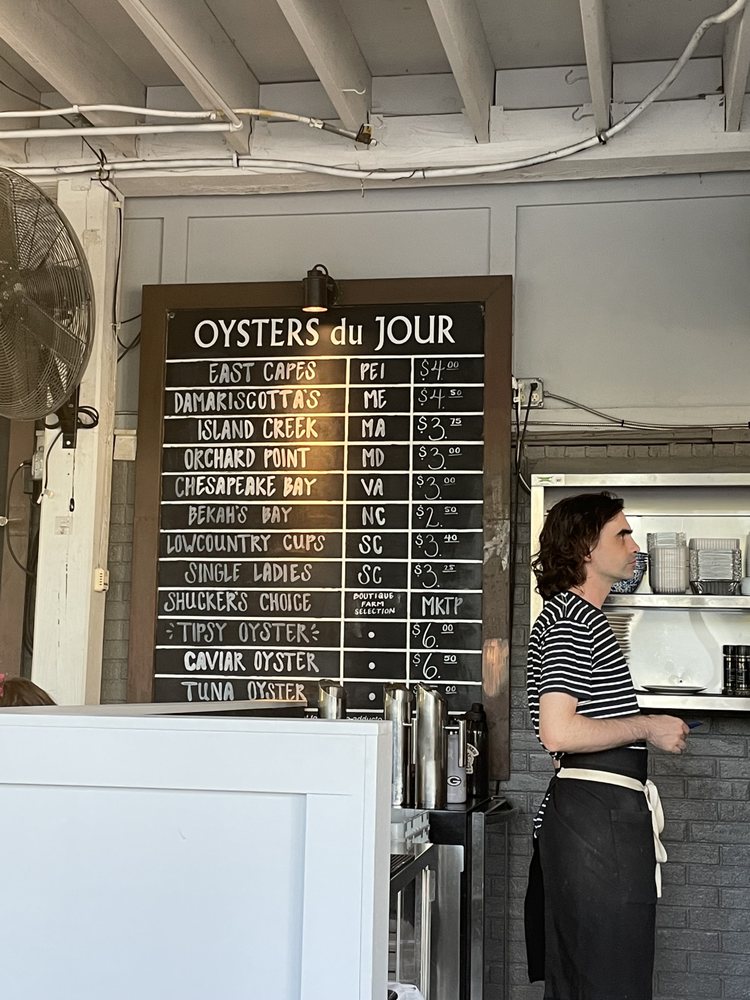 OYSTERS du JOUR
EAST CAPES PEI $4.00
DAMARISCOTTA'S ME $4.50
ISLAND CREEK MA $3.75
ORCHARD POINT MD $3.00
CHESAPEAKE BAY VA $3.00
BEKAH'S BAY NC $2.50
LOWCOUNTRY CUPS SC $3.40
SINGLE LADIES SC $3.25
SHUCKER'S CHOICE BOUTIQUE FARM SELECTION MKTP
TIPSY OYSTER • $6.00
CAVIAR OYSTER • $6.50
TUNA OYSTER • .00
G